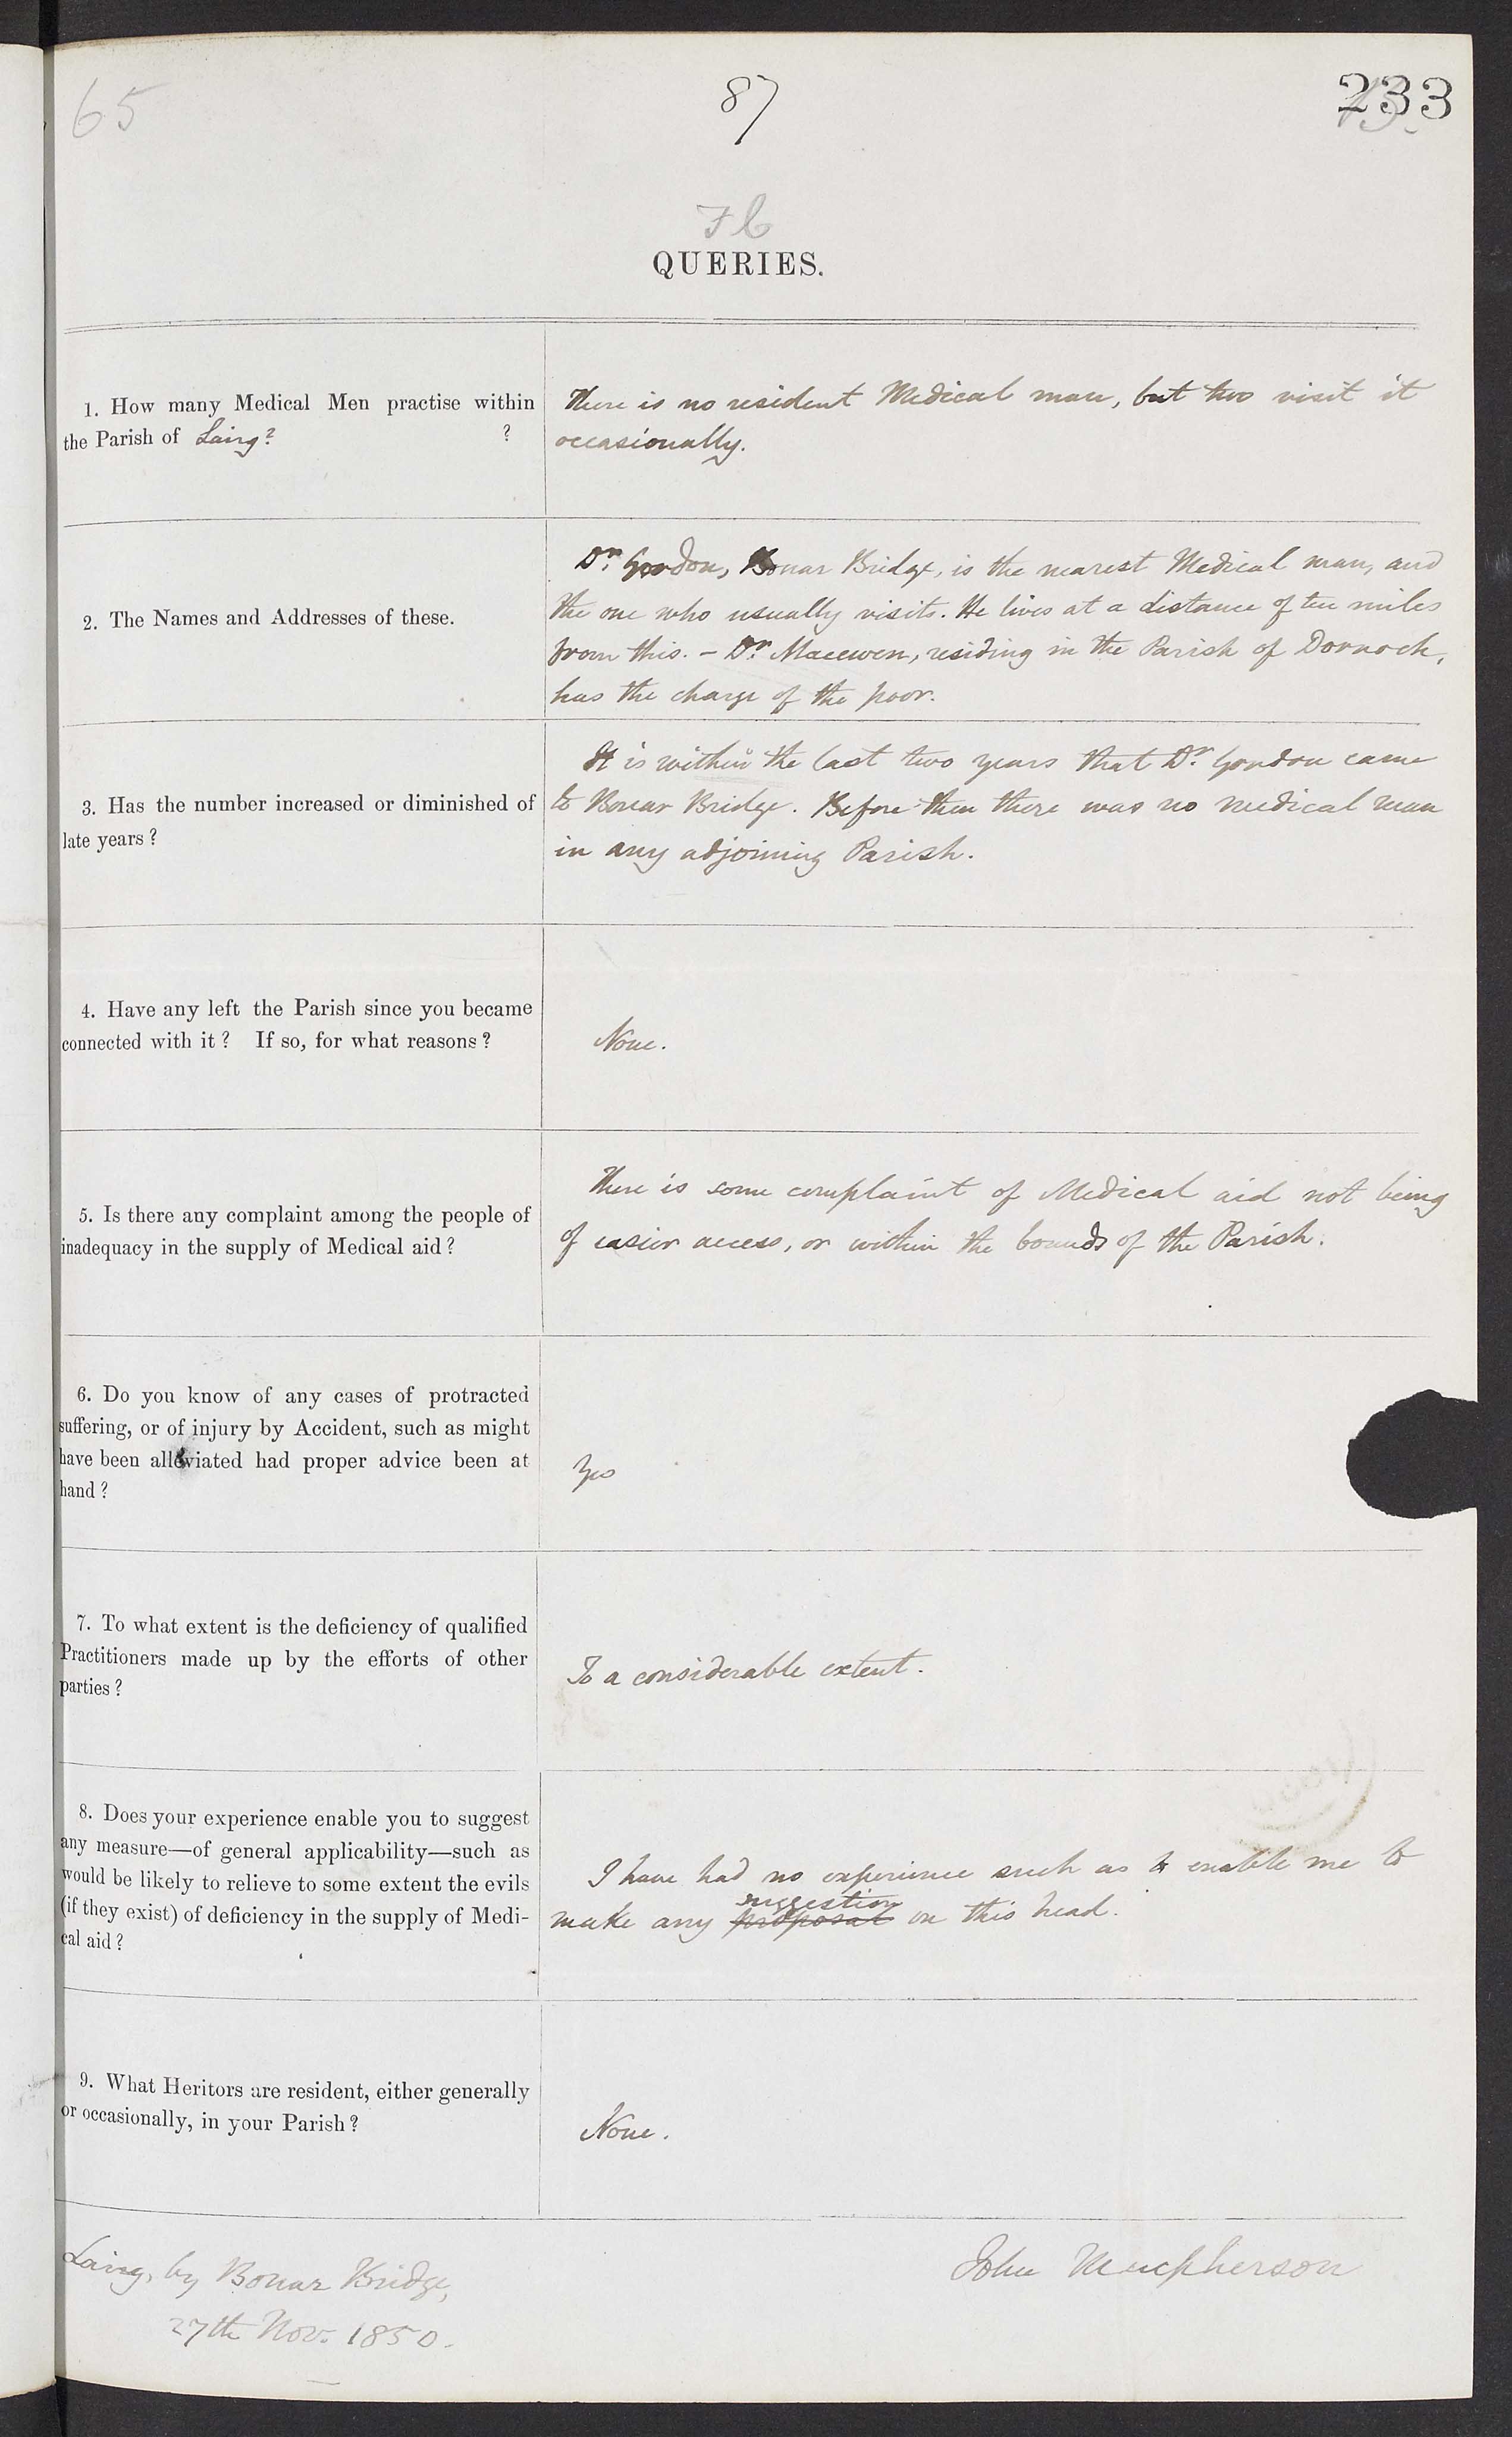 65
87
233
F C
QUERIES.
1. How many Medical Men practise within
the Parish of Lairg? ?
There is no resident Medical man, but two visit it
occasionally.
2. The Names and Addresses of these.
Dr. Gordon, Bonar Bridge, is the nearest Medical man, and
the one who usually visits. He lives at a distance of ten miles
from this. - Dr. Macewen, residing in the Parish of Dornoch,
has the charge of the poor.
3. Has the number increased or diminished of
late years?
It is within the last two years that Dr. Gordon came
to Bonar Bridge. Before then there was no medical man
in any adjoining Parish.
4. Have any left the Parish since you became
connected with it? If so, for what reasons?
None.
5. Is there any complaint among the people of
inadequacy in the supply of Medical aid?
There is some complaint of Medical aid not being
of easier access, or within the bounds of the Parish.
6. Do you know of any cases of protracted
suffering, or of injury by Accident, such as might
have been alleviated had proper advice been at
hand?
Yes
7. To what extent is the deficiency of qualified
Practitioners made up by the efforts of other
parties?
To a considerable extent.
8. Does your experience enable you to suggest
any measure—of general applicability—such as
would be likely to relieve to some extent the evils
(if they exist) of deficiency in the supply of Medi-
cal aid?
I have had no experience such as to enable me to
suggestion
make any proposal on this head.
9. What Heritors are resident, either generally
or occasionally, in your Parish?
None.
Lairg, by Bonar Bridge,
27th Nov. 1850.
John Macpherson